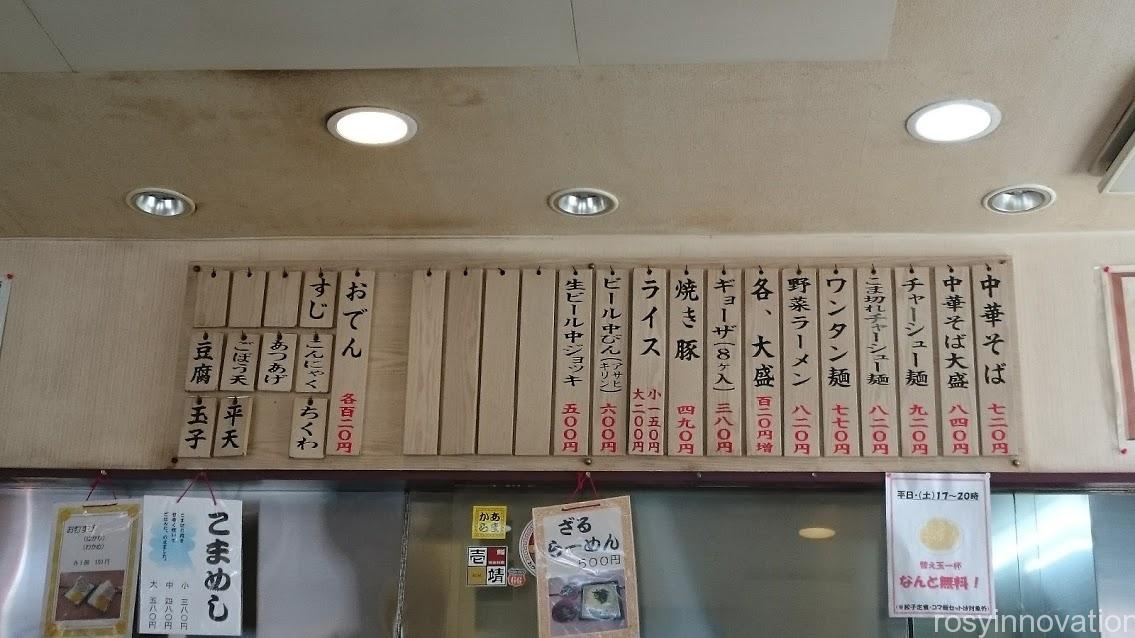 中華そば 七二〇円
中華そば大盛 八四〇円
チャーシュー麺 九二〇円
こま切れチャーシュー麺 八二〇円
ワンタン麺 七七〇円
野菜ラーメン 八二〇円
各、大盛 百二〇円増
ギョーザ(8ヶ入) 三八〇円
焼き豚 四九〇円
ライス 小一五〇円 大二〇〇円
ビール中びん(アサヒ キリン) 六〇〇円
生ビール中ジョッキ 五〇〇円
おでん 各百二〇円
すじ
こんにゃく
あつあげ
ごぼう天
豆腐
ちくわ
平天
玉子
平日・(土)17~20時
替え玉一杯
なんと無料!
(※餃子定食・コマ飯セットは対象外)
ざる
らーめん
500円
かあ
らま
壱
靖
こまめし
小 三八〇円
中 四八〇円
大 五八〇円
おむすび
(わかめ)
rosyinnovation